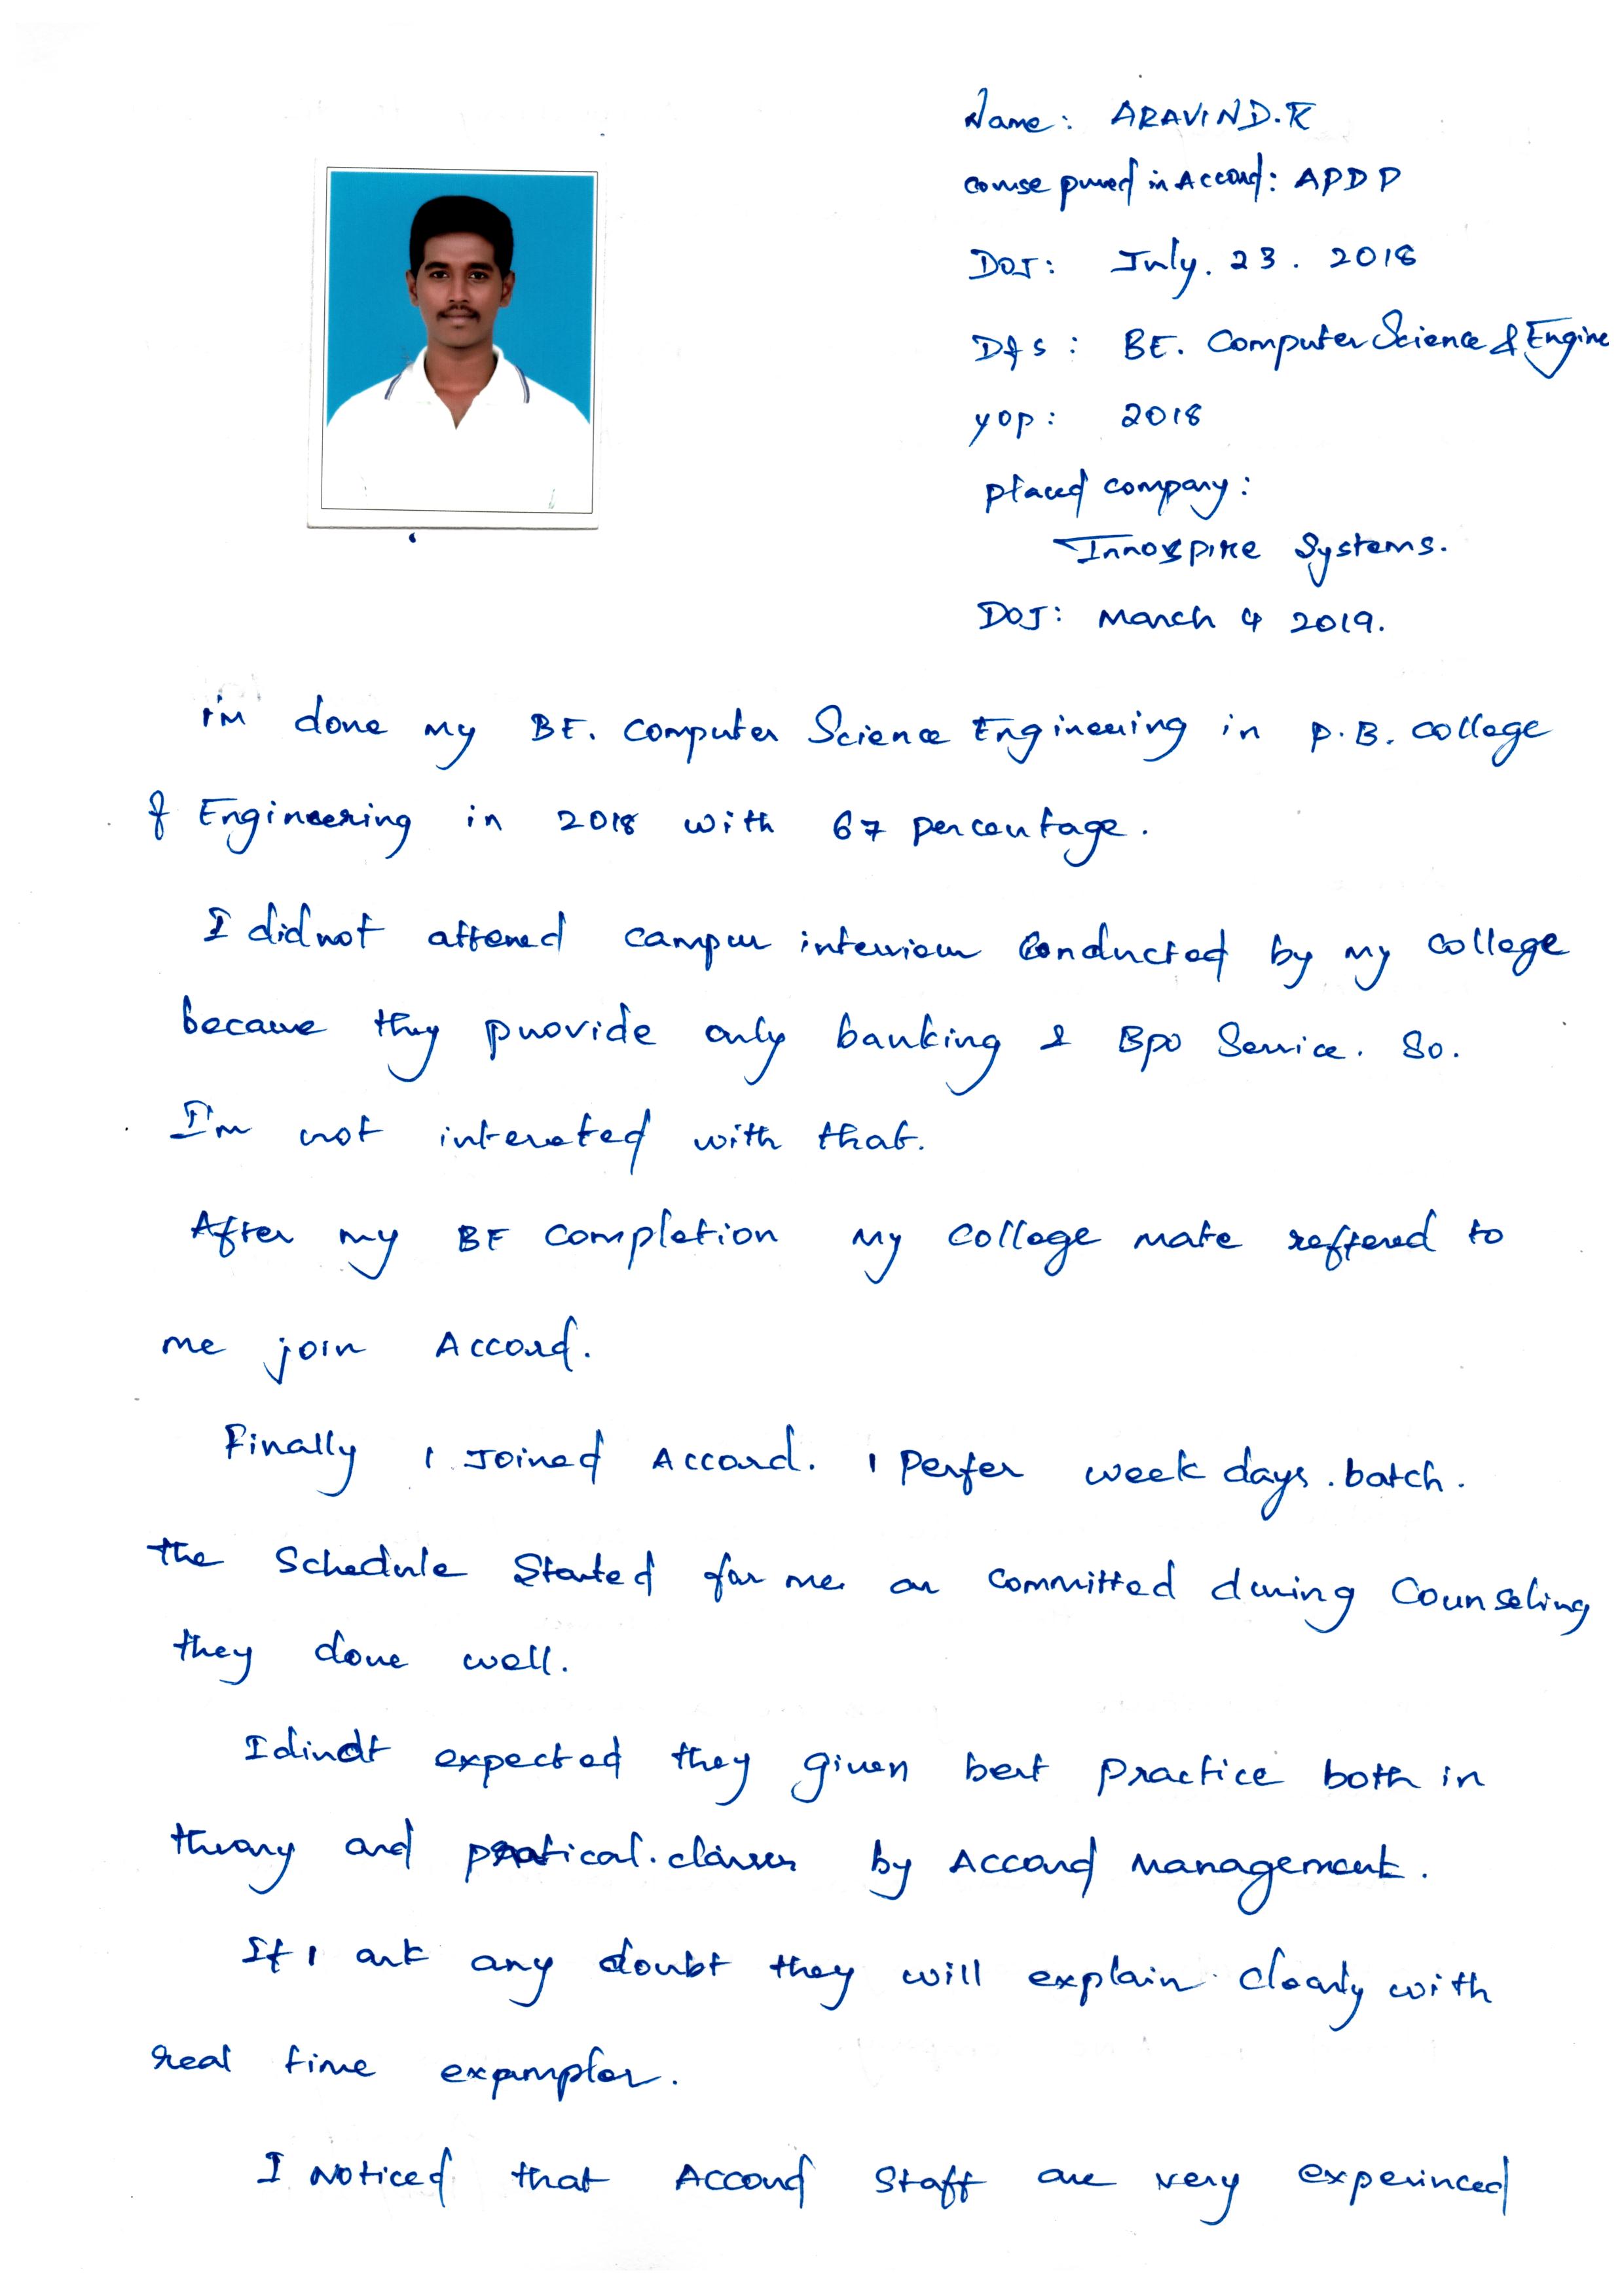 Name: ARAVIND.K
course pursed in Accord: APDP
DOJ: July. 23. 2018
D&S: BE. Computer Science & Engine
yop: 2018
placed company:
Innovspire Systems.
DOJ: March 4 2019.
I'm done my BE. Computer Science Engineering in P.B. College
of Engineering in 2018 with 67 percentage.
I did not attened campus interview conducted by my college
because they provide only banking & Bpo Service. So.
I'm not interested with that.
After my BE Completion my college mate reffered to
me join Accord.
Finally I Joined Accord. I Perfer week days.batch.
the Schedule Started for me as committed during Counseling
they done well.
I dindt expected they given best Practice both in
theory and pratical.classes by Accord Management.
If I ask any doubt they will explain clearly with
real time examples.
I Noticed that Accord Staff are very experinced